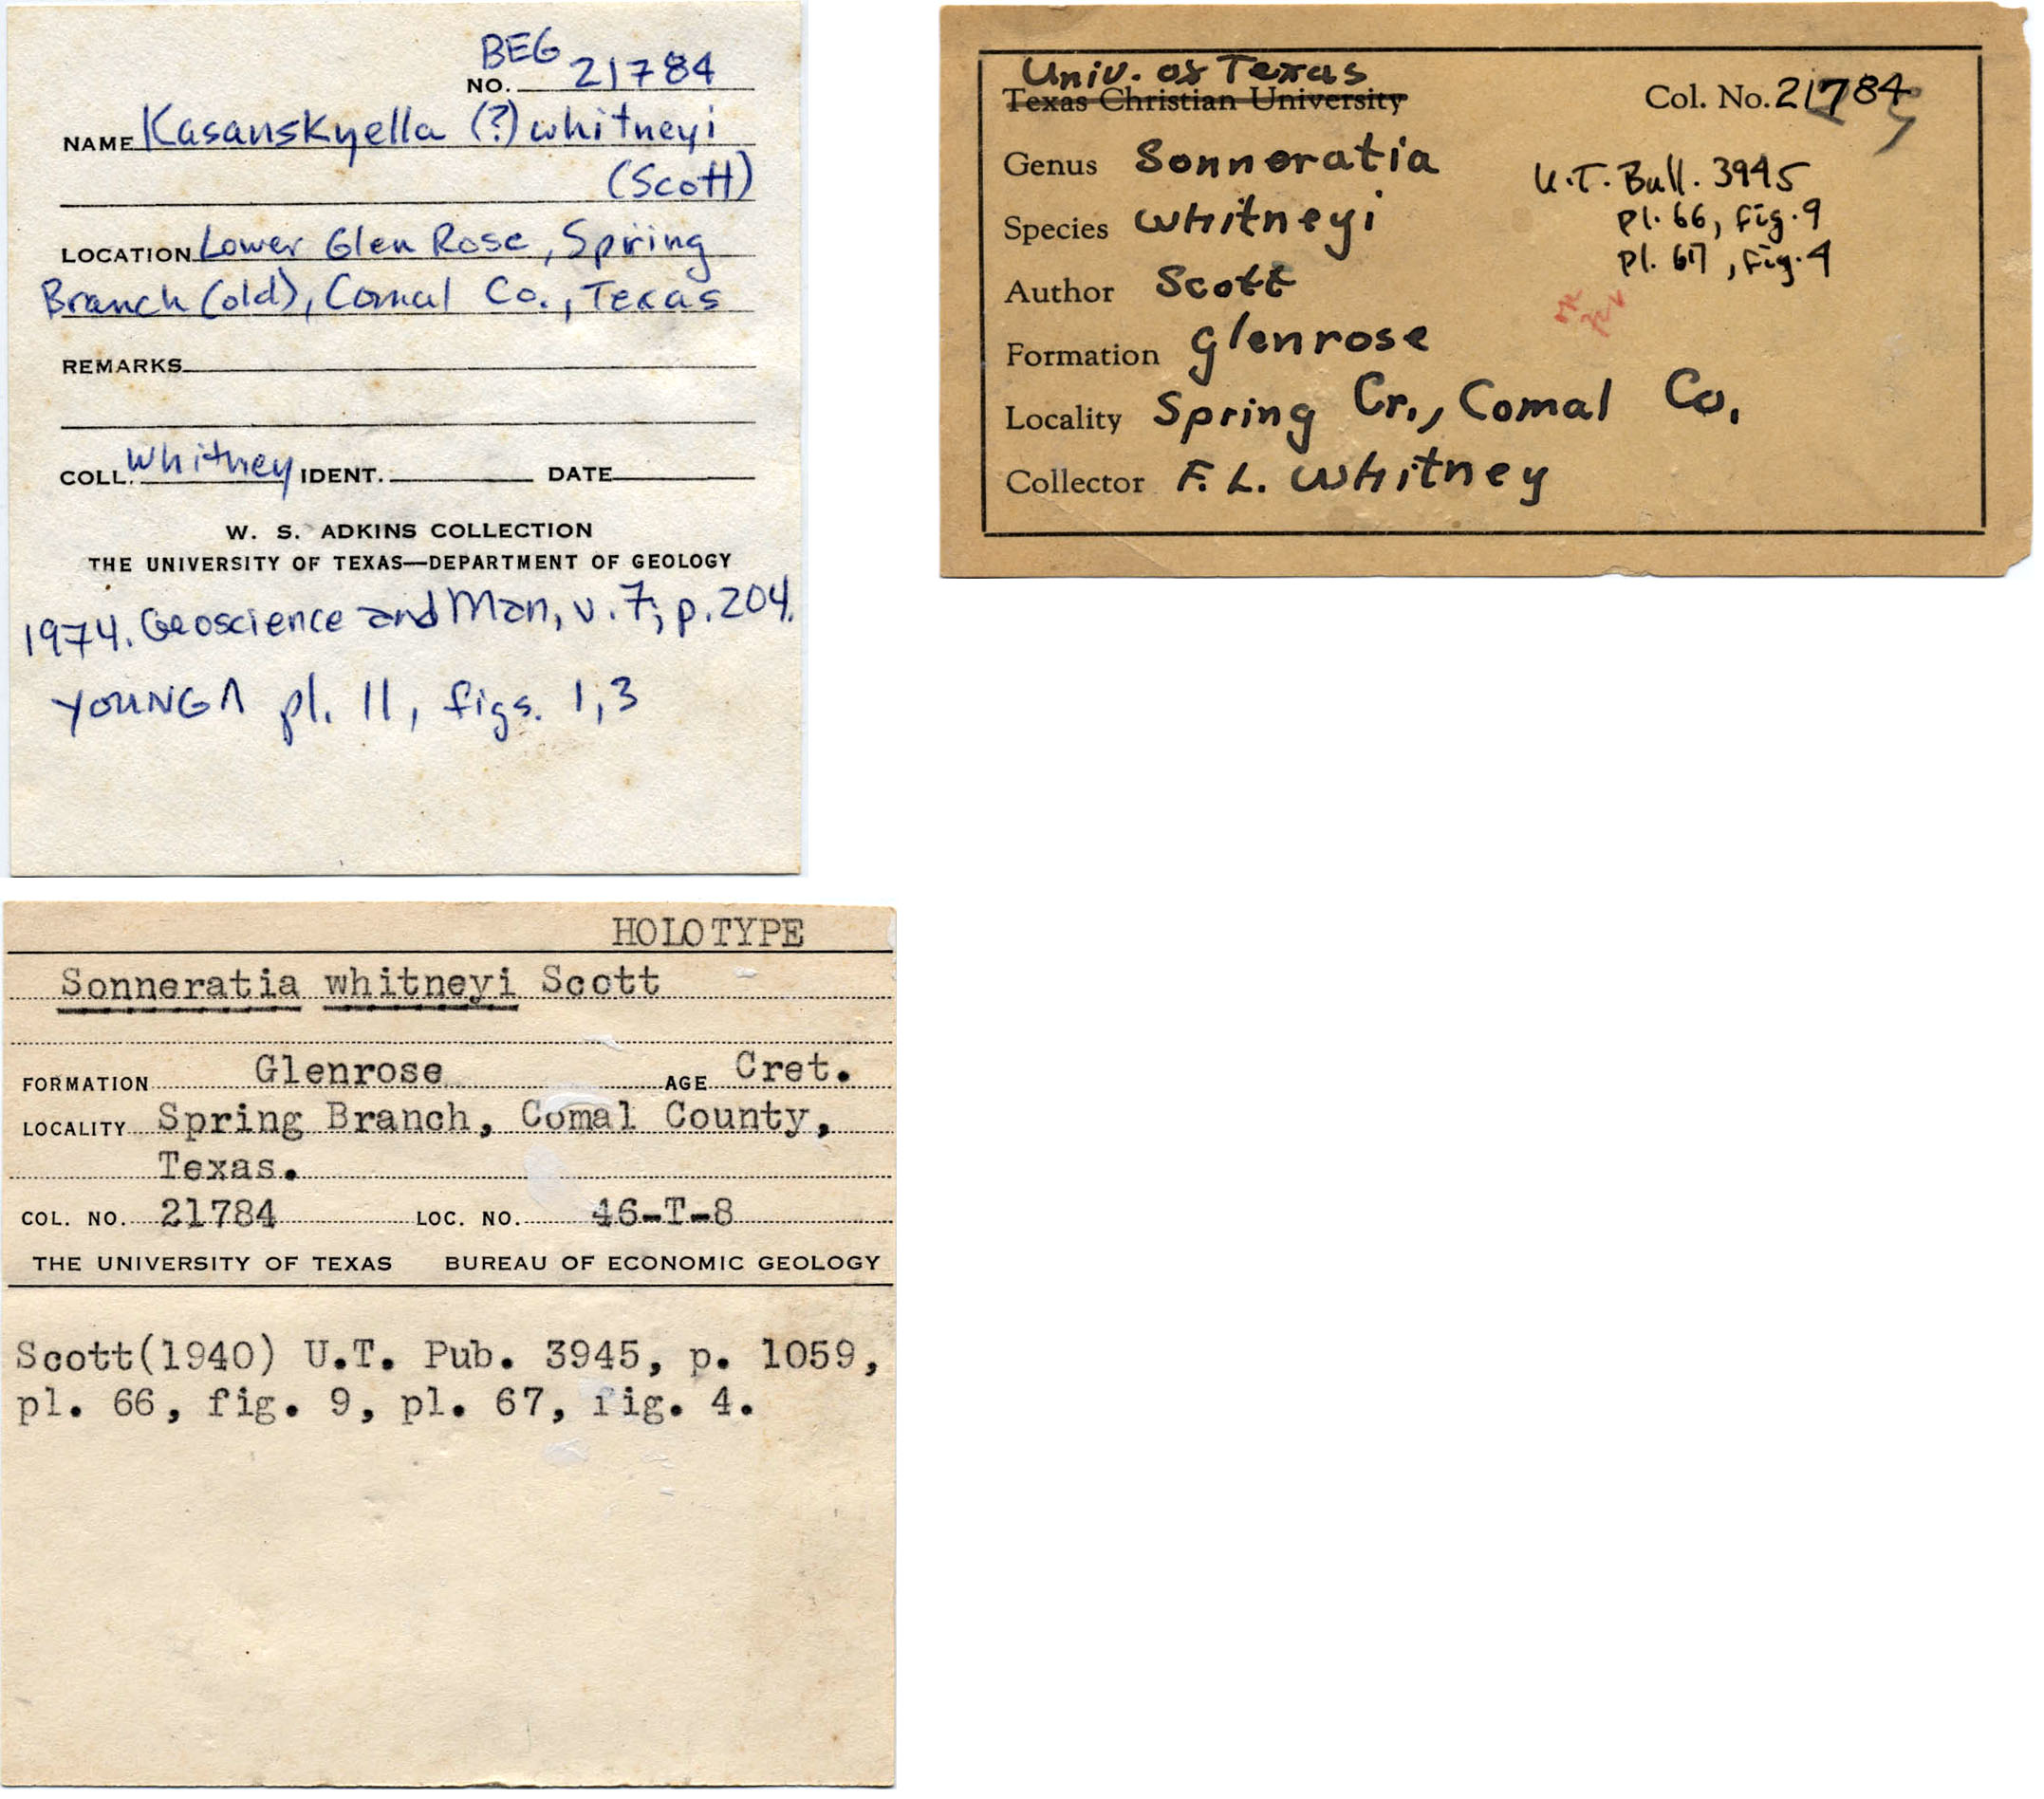 BEG
NO. 21784
NAME Kasanskyella (?) whitneyi
(Scott)
LOCATION Lower Glen Rose, Spring
Branch (old), Comal Co., Texas
REMARKS
COLL. Whitney IDENT. DATE
W. S. ADKINS COLLECTION
THE UNIVERSITY OF TEXAS—DEPARTMENT OF GEOLOGY
1974. Geoscience and Man, v. 7, p. 204.
YOUNG pl. 11, figs. 1,3
Univ. of Texas
Texas Christian University
Col. No. 21784
Genus Sonneratia
Species whitneyi
Author Scott
Formation Glenrose
Locality Spring Cr., Comal Co.
Collector F. L. Whitney
U.T. Bull. 3945
pl. 66, fig. 9
pl. 67, fig. 4
HOLOTYPE
Sonneratia whitneyi Scott
FORMATION Glenrose AGE Cret.
LOCALITY Spring Branch, Comal County,
Texas.
COL. NO. 21784 LOC. NO. 46-T-8
THE UNIVERSITY OF TEXAS BUREAU OF ECONOMIC GEOLOGY
Scott(1940) U.T. Pub. 3945, p. 1059,
pl. 66, fig. 9, pl. 67, fig. 4.